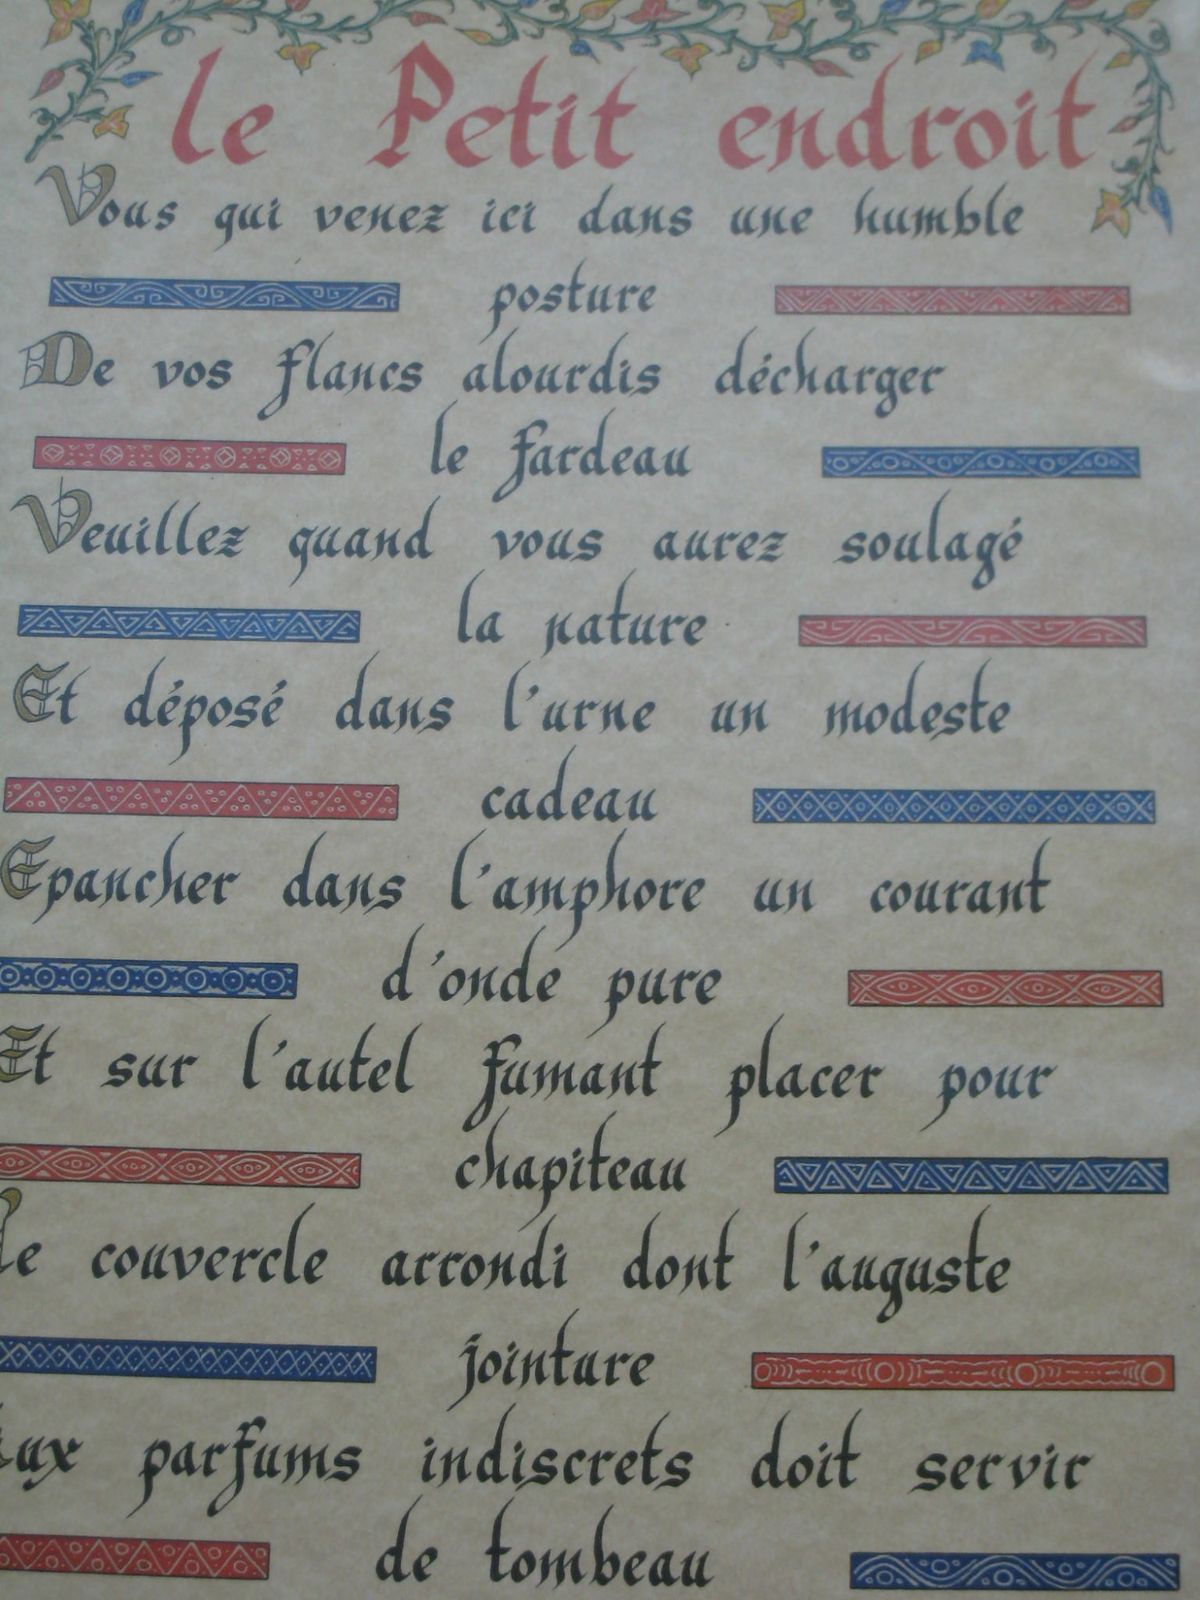 le Petit endroit
Vous qui venez ici dans une humble
posture
De vos flancs alourdis décharger
le fardeau
Veuillez quand vous aurez soulagé
la nature
Et déposé dans l'urne un modeste
cadeau
Epancher dans l'amphore un courant
d'onde pure
Et sur l'autel fumant placer pour
chapiteau
Le couvercle arrondi dont l'auguste
jointure
Aux parfums indiscrets doit servir
de tombeau